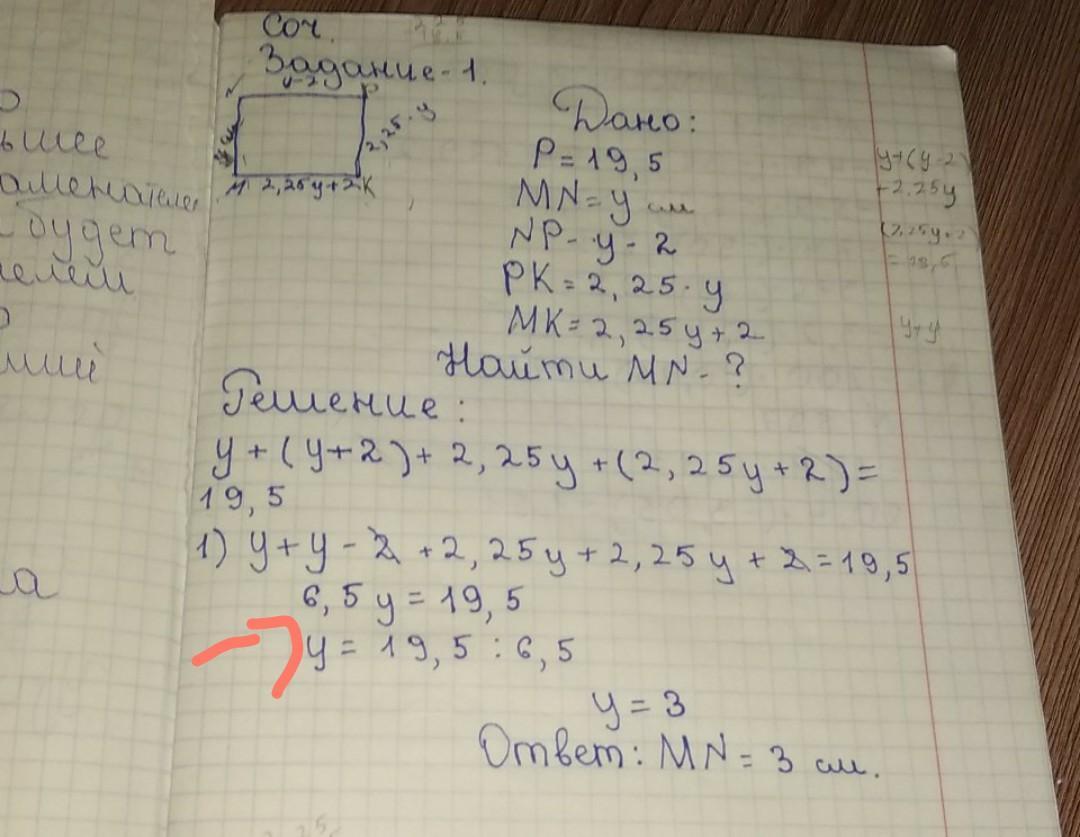 ьшее
аменателе
будет
лем
ший
ла
Соч.
Задание-1.
y-2
P
2,25·y
M 2,25y+2 K
Дано:
P=19,5
MN=y см
NP-y-2
PK=2,25·y
MK=2,25y+2
Найти MN-?
y+(y-2)
+2.25y
(2,25y+2)
=19,5
y+y
Решение:
y+(y+2)+2,25y+(2,25y+2)=
19,5
1) y+y-2+2,25y+2,25y+2=19,5
6,5y=19,5
y=19,5:6,5
y=3
Ответ: MN=3 см.